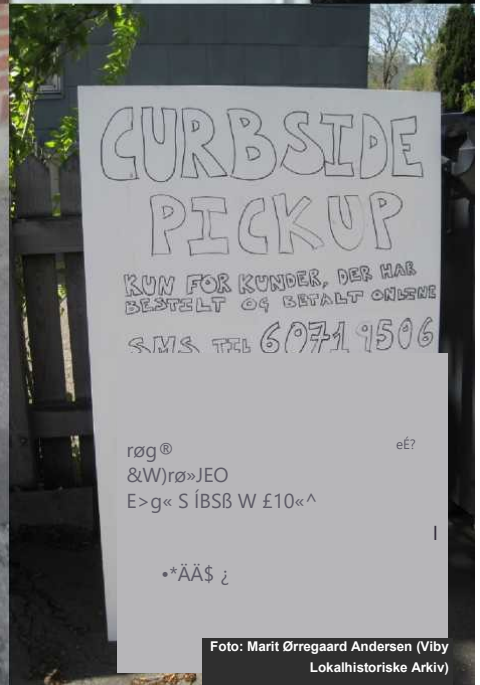 CURBSIDE
PICKUP
KUN FOR KUNDER, DER HAR
BESTILT OG BETALT ONLINE
SMS TIL 60719506
røg® eÉ?
&W)rø»JEO
E>g« S ÍBSß W £10«^
I
•*ÄÄ$ ¿
Foto: Marit Ørregaard Andersen (Viby
Lokalhistoriske Arkiv)